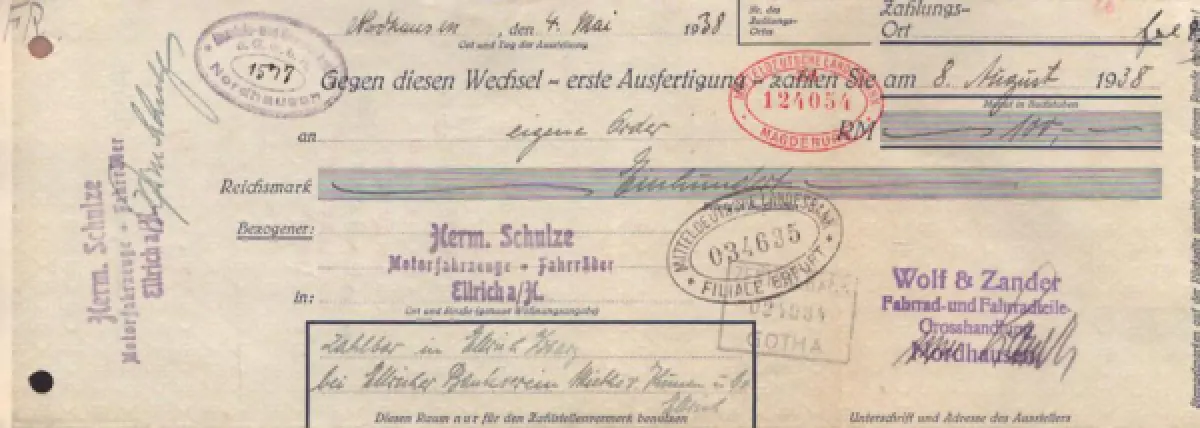 Nordhausen, den 4. Mai 1938
Ort und Tag der Ausstellung
Nr. des Zahlungs-Ortes
Zahlungs-Ort
1577
Nordhausen
Gegen diesen Wechsel – erste Ausfertigung – zahlen Sie am 8. August 1938
Monat in Buchstaben
MITTELDEUTSCHE LANDESBANK
124054
MAGDEBURG
an eigene Order RM 100,-
Reichsmark Einhundert
Bezogener:
Herm. Schulze
Motorfahrzeuge - Fahrräder
Ellrich a/H.
in:
Ort und Straße (genaue Wohnungsangabe)
Herm. Schulze
Motorfahrzeuge - Fahrräder
Ellrich a/H.
MITTELDEUTSCHE LANDESBANK
034635
FILIALE ERFURT
GOTHA
Wolf & Zander
Fahrrad-und Fahrradteile-
Grosshandlung
Nordhausen
Zahlbar in Ellrich Harz
bei Ellricher Bankverein
Ellrich
Diesen Raum nur für den Zahlstellenvermerk benutzen
Unterschrift und Adresse des Ausstellers